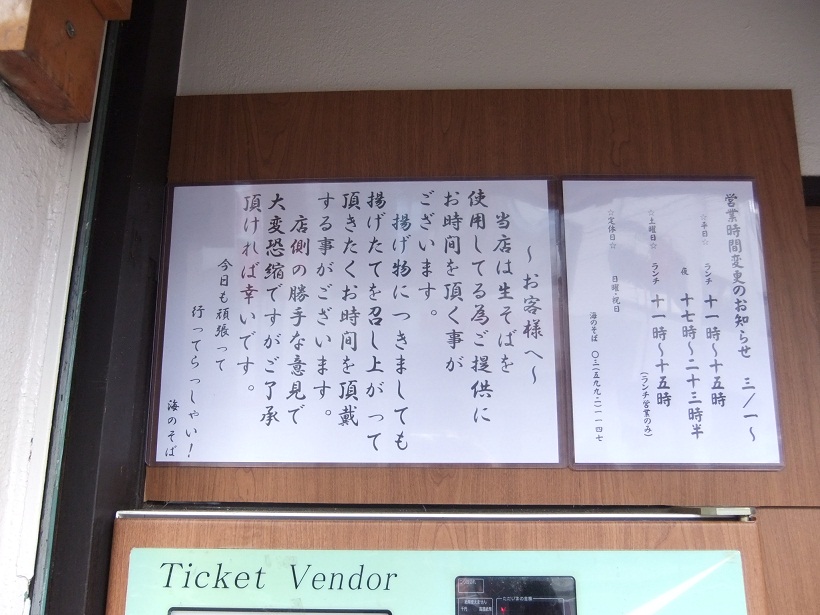 営業時間変更のお知らせ 三/一～
☆平日☆ ランチ 十一時～十五時
夜 十七時～二十三時半
☆土曜日☆ ランチ 十一時～十五時
(ランチ営業のみ)
☆定休日☆ 日曜・祝日
海のそば 〇三(五九九二)一一四七
～お客様へ～
当店は生そばを
使用してる為ご提供に
お時間を頂く事が
ございます。
揚げ物につきましても
揚げたてを召し上がって
頂きたくお時間を頂戴
する事がございます。
店側の勝手な意見で
大変恐縮ですがご了承
頂ければ幸いです。
今日も頑張って
行ってらっしゃい!
海のそば
Ticket Vendor